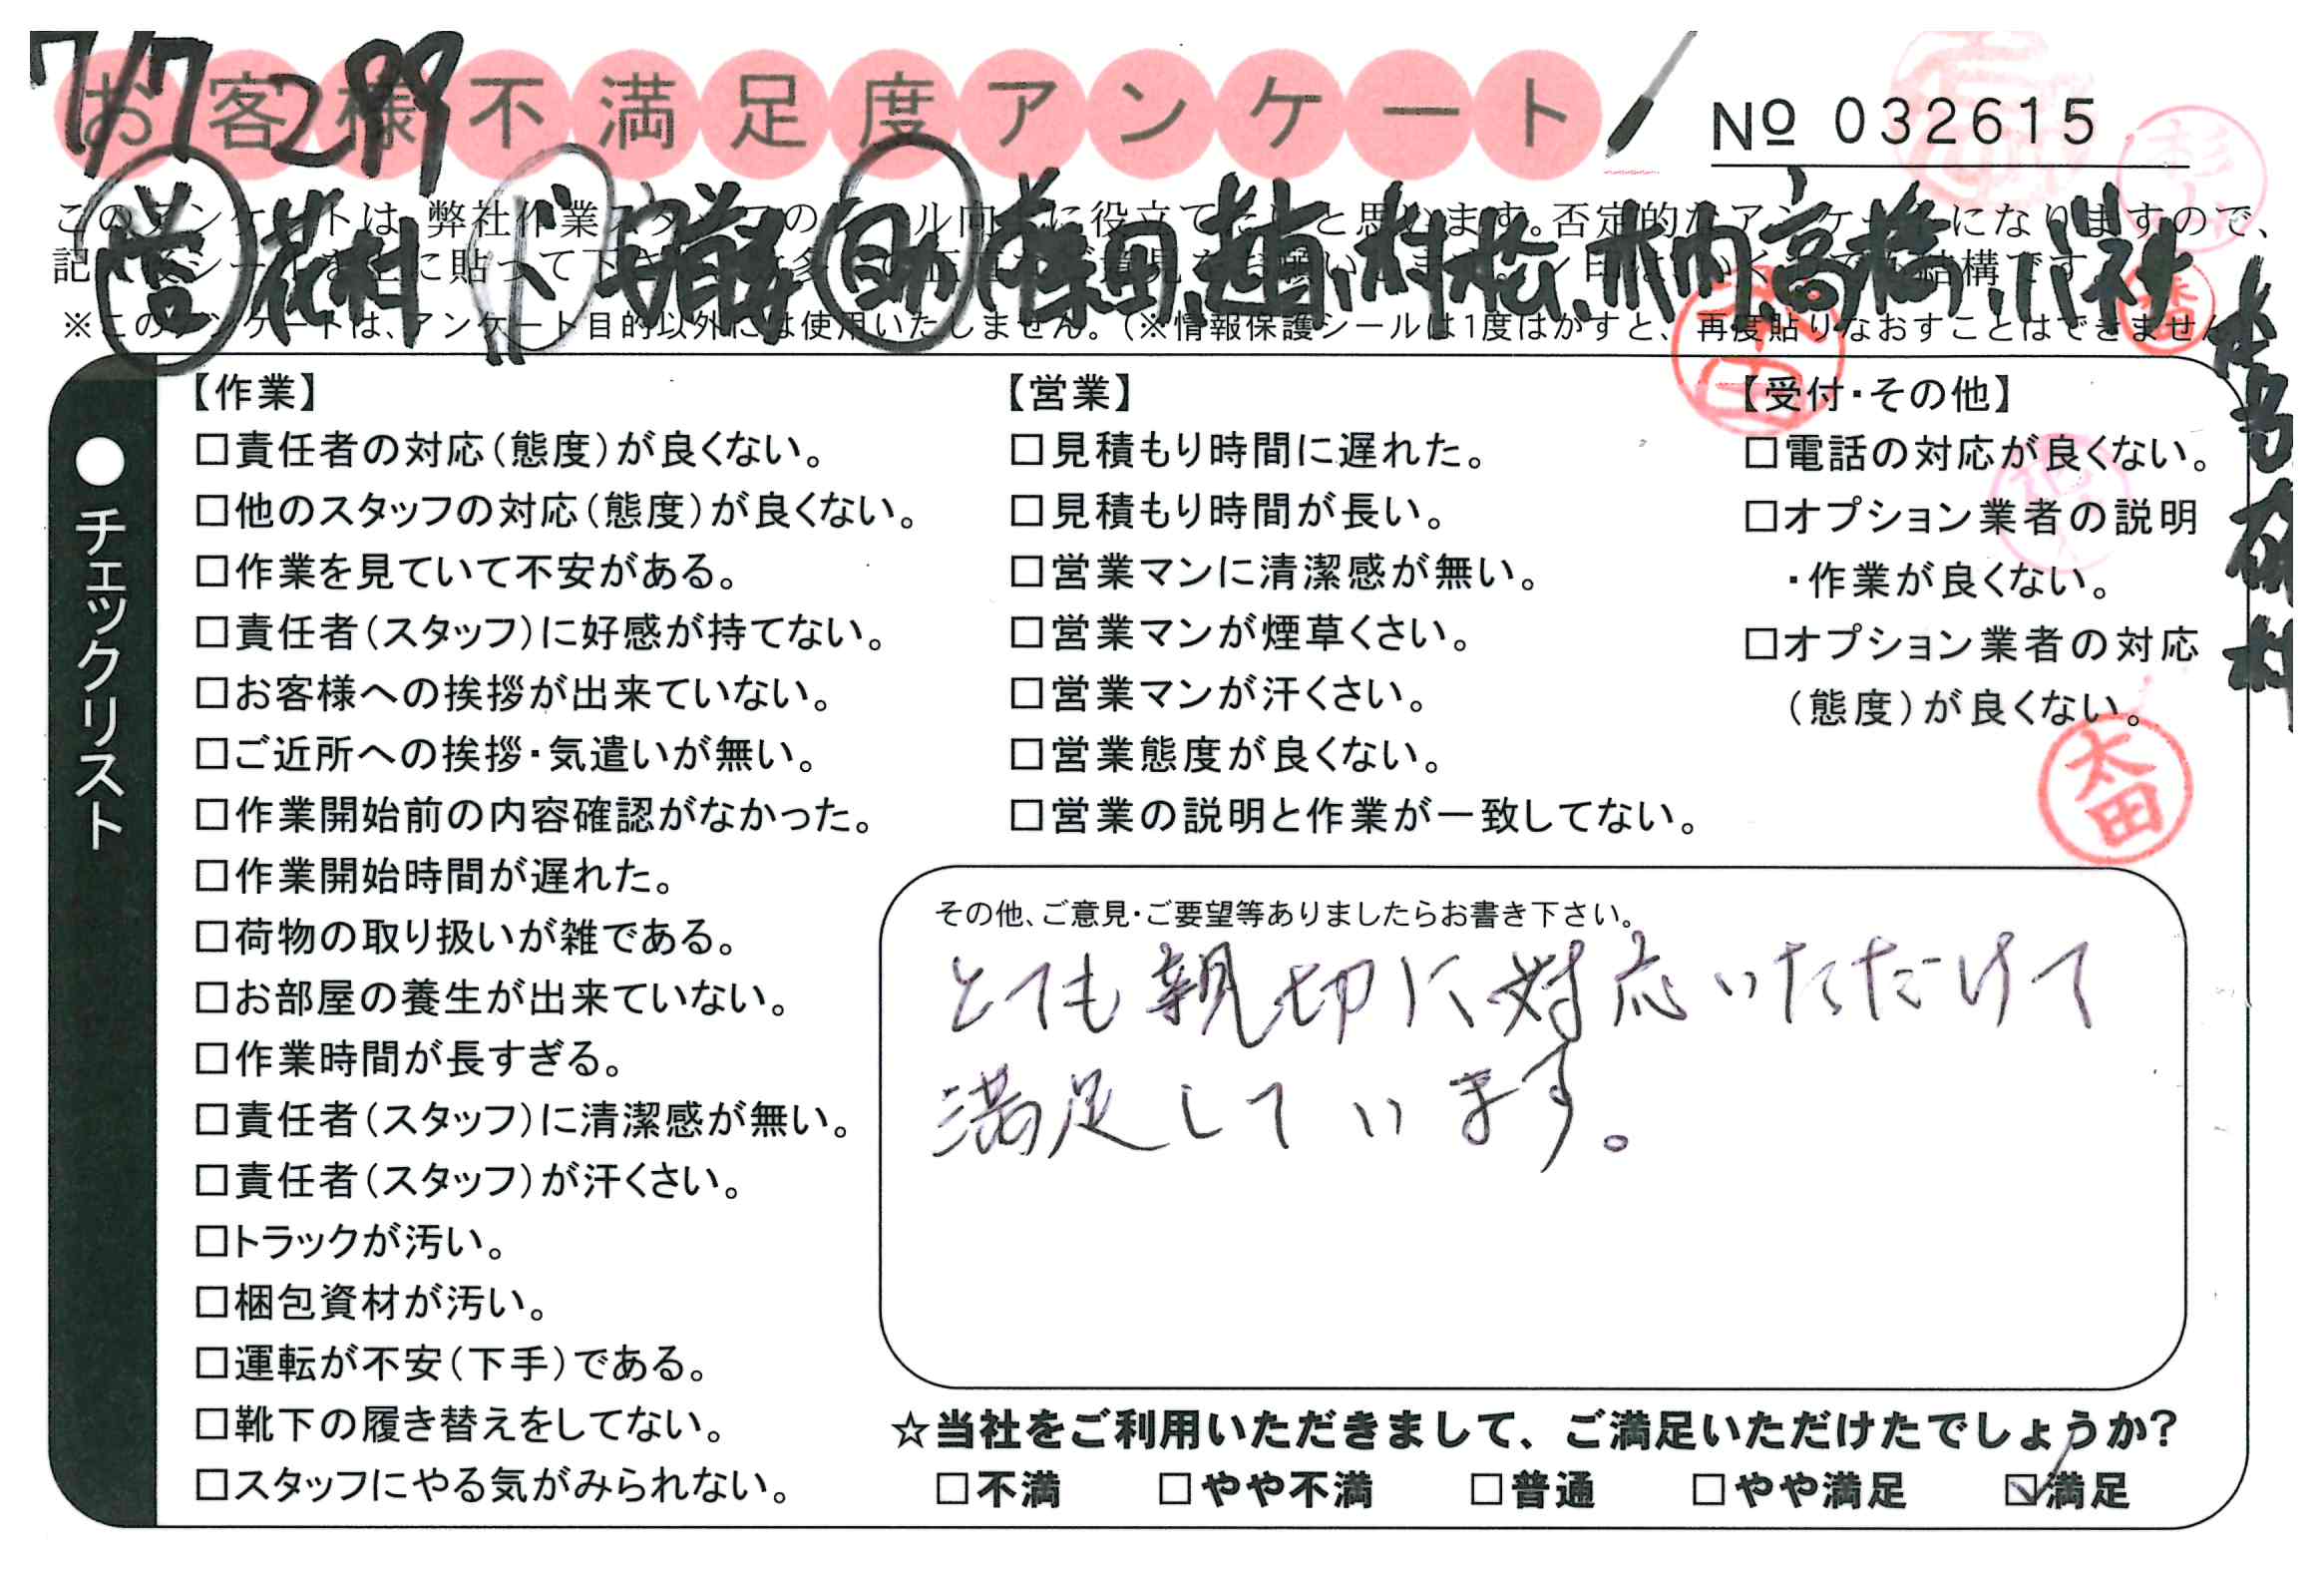 7/7 299
お客様不満足度アンケート
№ 032615
※このアンケートは、アンケート目的以外には使用いたしません。(※情報保護シールは1度はがすと、再度貼りなおすことはできません
●チェックリスト
【作業】
□責任者の対応(態度)が良くない。
□他のスタッフの対応(態度)が良くない。
□作業を見ていて不安がある。
□責任者(スタッフ)に好感が持てない。
□お客様への挨拶が出来ていない。
□ご近所への挨拶・気遣いが無い。
□作業開始前の内容確認がなかった。
□作業開始時間が遅れた。
□荷物の取り扱いが雑である。
□お部屋の養生が出来ていない。
□作業時間が長すぎる。
□責任者(スタッフ)に清潔感が無い。
□責任者(スタッフ)が汗くさい。
□トラックが汚い。
□梱包資材が汚い。
□運転が不安(下手)である。
□靴下の履き替えをしてない。
□スタッフにやる気がみられない。
【営業】
□見積もり時間に遅れた。
□見積もり時間が長い。
□営業マンに清潔感が無い。
□営業マンが煙草くさい。
□営業マンが汗くさい。
□営業態度が良くない。
□営業の説明と作業が一致してない。
【受付・その他】
□電話の対応が良くない。
□オプション業者の説明
・作業が良くない。
□オプション業者の対応
(態度)が良くない。
太田
その他、ご意見・ご要望等ありましたらお書き下さい。
とても親切に対応いただけて
満足しています。
☆当社をご利用いただきまして、ご満足いただけたでしょうか?
□不満 □やや不満 □普通 □やや満足 ☑満足